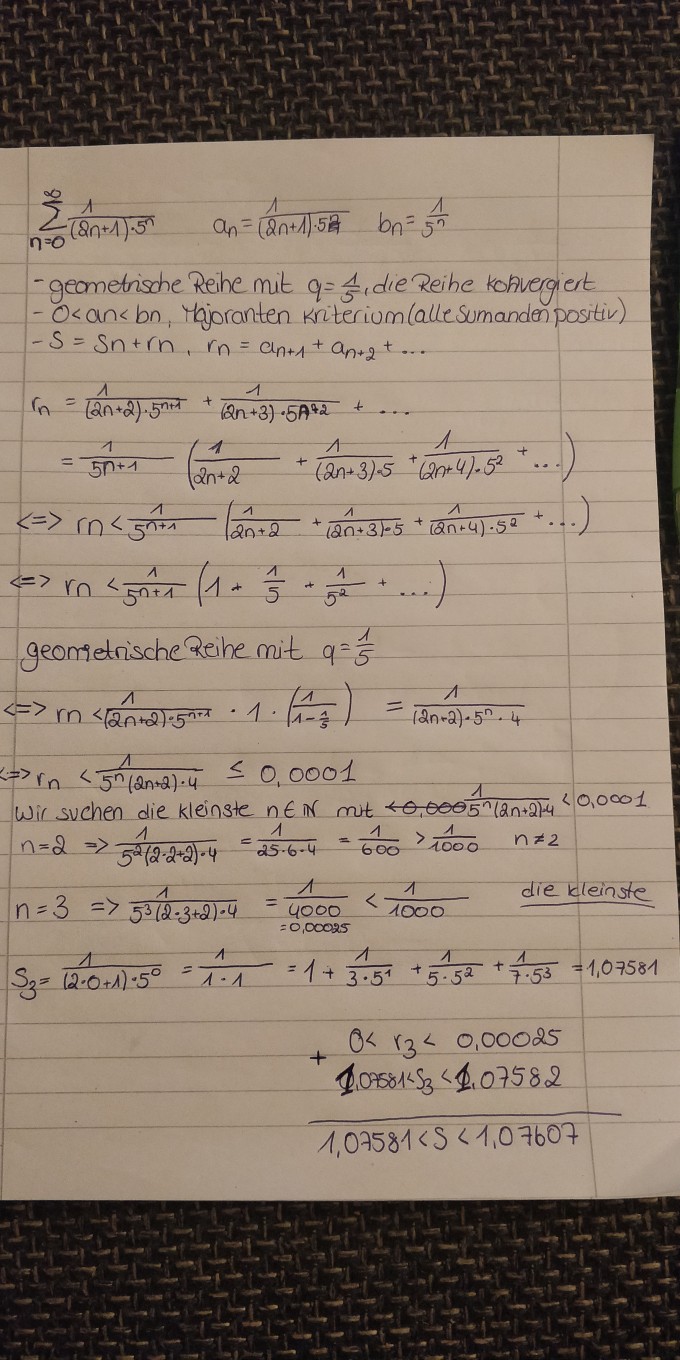 ∞ Σ n=0 1/((2n+1)·5^n)   a_n = 1/((2n+1)·5^n)   b_n = 1/5^n
- geometrische Reihe mit q = 1/5, die Reihe konvergiert
- 0<an<bn, Majoranten Kriterium (alle Sumanden positiv)
- S = Sn + rn, rn = a_{n+1} + a_{n+2} + ...
rn = 1/((2n+2)·5^{n+1}) + 1/((2n+3)·5^{n+2}) + ...
= 1/5^{n+1} (1/(2n+2) + 1/((2n+3)·5) + 1/((2n+4)·5^2) + ...)
<=> rn < 1/5^{n+1} (1/(2n+2) + 1/((2n+3)·5) + 1/((2n+4)·5^2) + ...)
<=> rn < 1/5^{n+1} (1 + 1/5 + 1/5^2 + ...)
geometrische Reihe mit q = 1/5
<=> rn < 1/((2n+2)·5^{n+1}) · 1 · (1/(1-1/5)) = 1/((2n+2)·5^n·4)
<=> rn < 1/(5^n(2n+2)·4) ≤ 0,0001
Wir suchen die kleinste n∈N mit 1/(5^n(2n+2)·4) < 0,0001
n=2 => 1/(5^2(2·2+2)·4) = 1/(25·6·4) = 1/600 > 1/1000   n≠2
n=3 => 1/(5^3(2·3+2)·4) = 1/4000 < 1/1000   die kleinste
=0,00025
S_3 = 1/((2·0+1)·5^0) = 1/(1·1) = 1 + 1/(3·5^1) + 1/(5·5^2) + 1/(7·5^3) = 1,07581
0 < r_3 < 0,00025
+ 1,07581 < S_3 < 1,07582
1,07581 < S < 1,07607